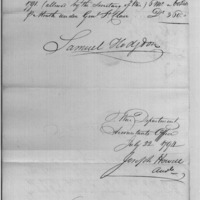 1791 (allowed by the Secretary of War) 6 mos.
North under Genl St Clair Ds 350.
Samuel Hodgdon
War Department
Accountants Office
July 22. 1792
Joseph Howell
Acct